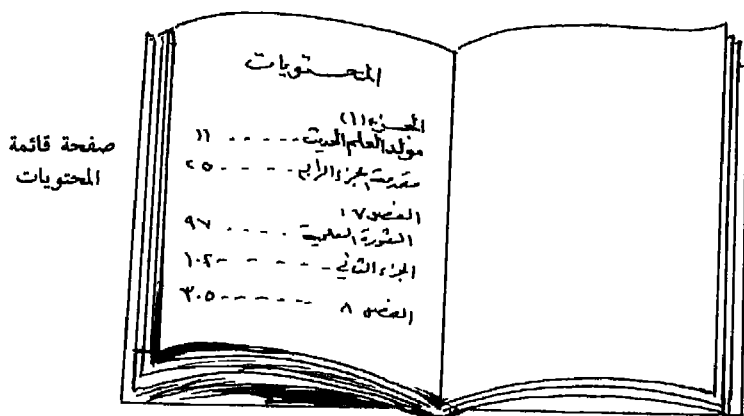 صفحة قائمة
المحتويات
المحتويات
الجزء (١)
مولد العلم الحديث ----- ١١
مقدمة الجزء الرابع ----- ٢٥
الفصل ٧
الثورة العلمية ---- ٩٧
الجزء الثاني ------ ١٠٢
الفصل ٨ ------ ٣٠٥